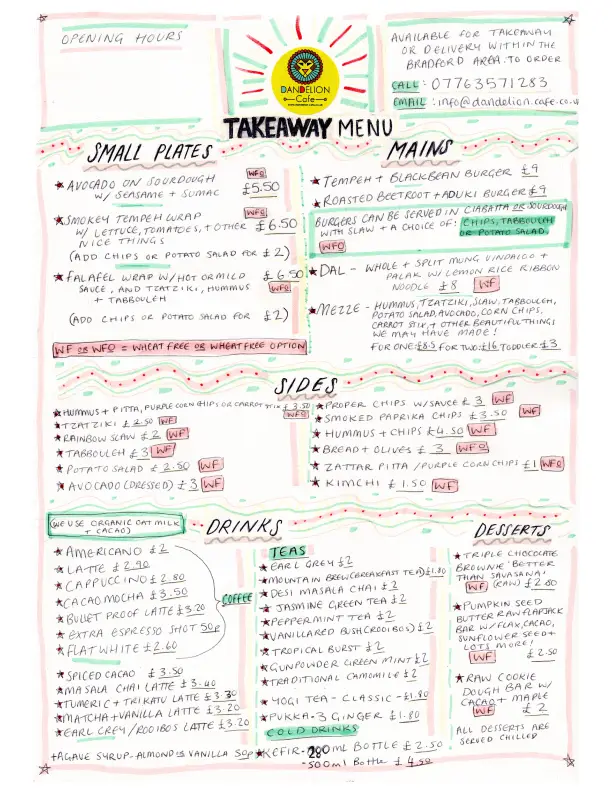 OPENING HOURS
DANDELION
Cafe
AVAILABLE FOR TAKEAWAY
OR DELIVERY WITHIN THE
BRADFORD AREA. TO ORDER
CALL: 07763571283
EMAIL: info@dandelion.cafe.co.u
TAKEAWAY MENU
SMALL PLATES
WFO
AVOCADO ON SOURDOUGH £5.50
W/ SEASAME + SUMAC
WFO
SMOKEY TEMPEH WRAP
W/ LETTUCE, TOMATOES, + OTHER £6.50
NICE THINGS
(ADD CHIPS OR POTATO SALAD FOR £2)
FALAFEL WRAP W/ HOT OR MILD £6.50
SAUCE, AND TZATZIKI, HUMMUS WFO
+ TABBOULEH
(ADD CHIPS OR POTATO SALAD FOR £2)
WF OR WFO = WHEAT FREE OR WHEAT FREE OPTION
MAINS
TEMPEH + BLACKBEAN BURGER £9
ROASTED BEETROOT + ADUKI BURGER £9
BURGERS CAN BE SERVED IN CIABATTA OR SOURDOUGH
WITH SLAW + A CHOICE OF: CHIPS, TABBOULEH
OR POTATO SALAD.
WFO
DAL - WHOLE + SPLIT MUNG VINDALOO +
PALAK W/ LEMON RICE RIBBON
NOODLE £8 WF
MEZZE - HUMMUS, TZATZIKI, SLAW, TABBOULEH,
POTATO SALAD, AVOCADO, CORN CHIPS,
CARROT STIX, + OTHER BEAUTIFUL THINGS
WE MAY HAVE MADE!
FOR ONE: £8.5 FOR TWO: £16 TODDLER £3
SIDES
HUMMUS + PITTA, PURPLE CORN CHIPS OR CARROT STIX £3.50
WFO
TZATZIKI £2.50 WF
RAINBOW SLAW £2 WF
TABBOULEH £3 WF
POTATO SALAD £2.50 WF
AVOCADO (DRESSED) £3 WF
PROPER CHIPS W/ SAUCE £3 WF
SMOKED PAPRIKA CHIPS £3.50 WF
HUMMUS + CHIPS £4.50 WF
BREAD + OLIVES £3 WFO
ZATTAR PITTA / PURPLE CORN CHIPS £1 WFO
KIMCHI £1.50 WF
(WE USE ORGANIC OAT MILK
+ CACAO)
DRINKS
AMERICANO £2
LATTE £2.90
CAPPUCCINO £2.80
CACAO MOCHA £3.50
BULLET PROOF LATTE £3.20
EXTRA ESPRESSO SHOT 50p
FLAT WHITE £2.60
COFFEE
SPICED CACAO £3.50
MASALA CHAI LATTE £3.40
TUMERIC + TRIKATU LATTE £3.30
MATCHA + VANILLA LATTE £3.20
EARL GREY / ROOIBOS LATTE £3.20
+ AGAVE SYRUP - ALMOND OR VANILLA 50p
TEAS
EARL GREY £2
MOUNTAIN BREW (BREAKFAST TEA) £1.80
DESI MASALA CHAI £2
JASMINE GREEN TEA £2
PEPPERMINT TEA £2
VANILLA RED BUSH (ROOIBOS) £2
TROPICAL BURST £2
GUNPOWDER GREEN MINT £2
TRADITIONAL CAMOMILE £2
YOGI TEA - CLASSIC - £1.80
PUKKA - 3 GINGER £1.80
COLD DRINKS
KEFIR - 280ml BOTTLE £2.50
- 500ml Bottle £4.50
DESSERTS
TRIPLE CHOCOLATE
BROWNIE 'BETTER
THAN SAVASANA'
WF (RAW) £2.80
PUMPKIN SEED
BUTTER RAW FLAPJACK
BAR W/ FLAX, CACAO,
SUNFLOWER SEED +
LOTS MORE!
WF £2.50
RAW COOKIE
DOUGH BAR W/
CACAO + MAPLE
WF £2
ALL DESSERTS ARE
SERVED CHILLED